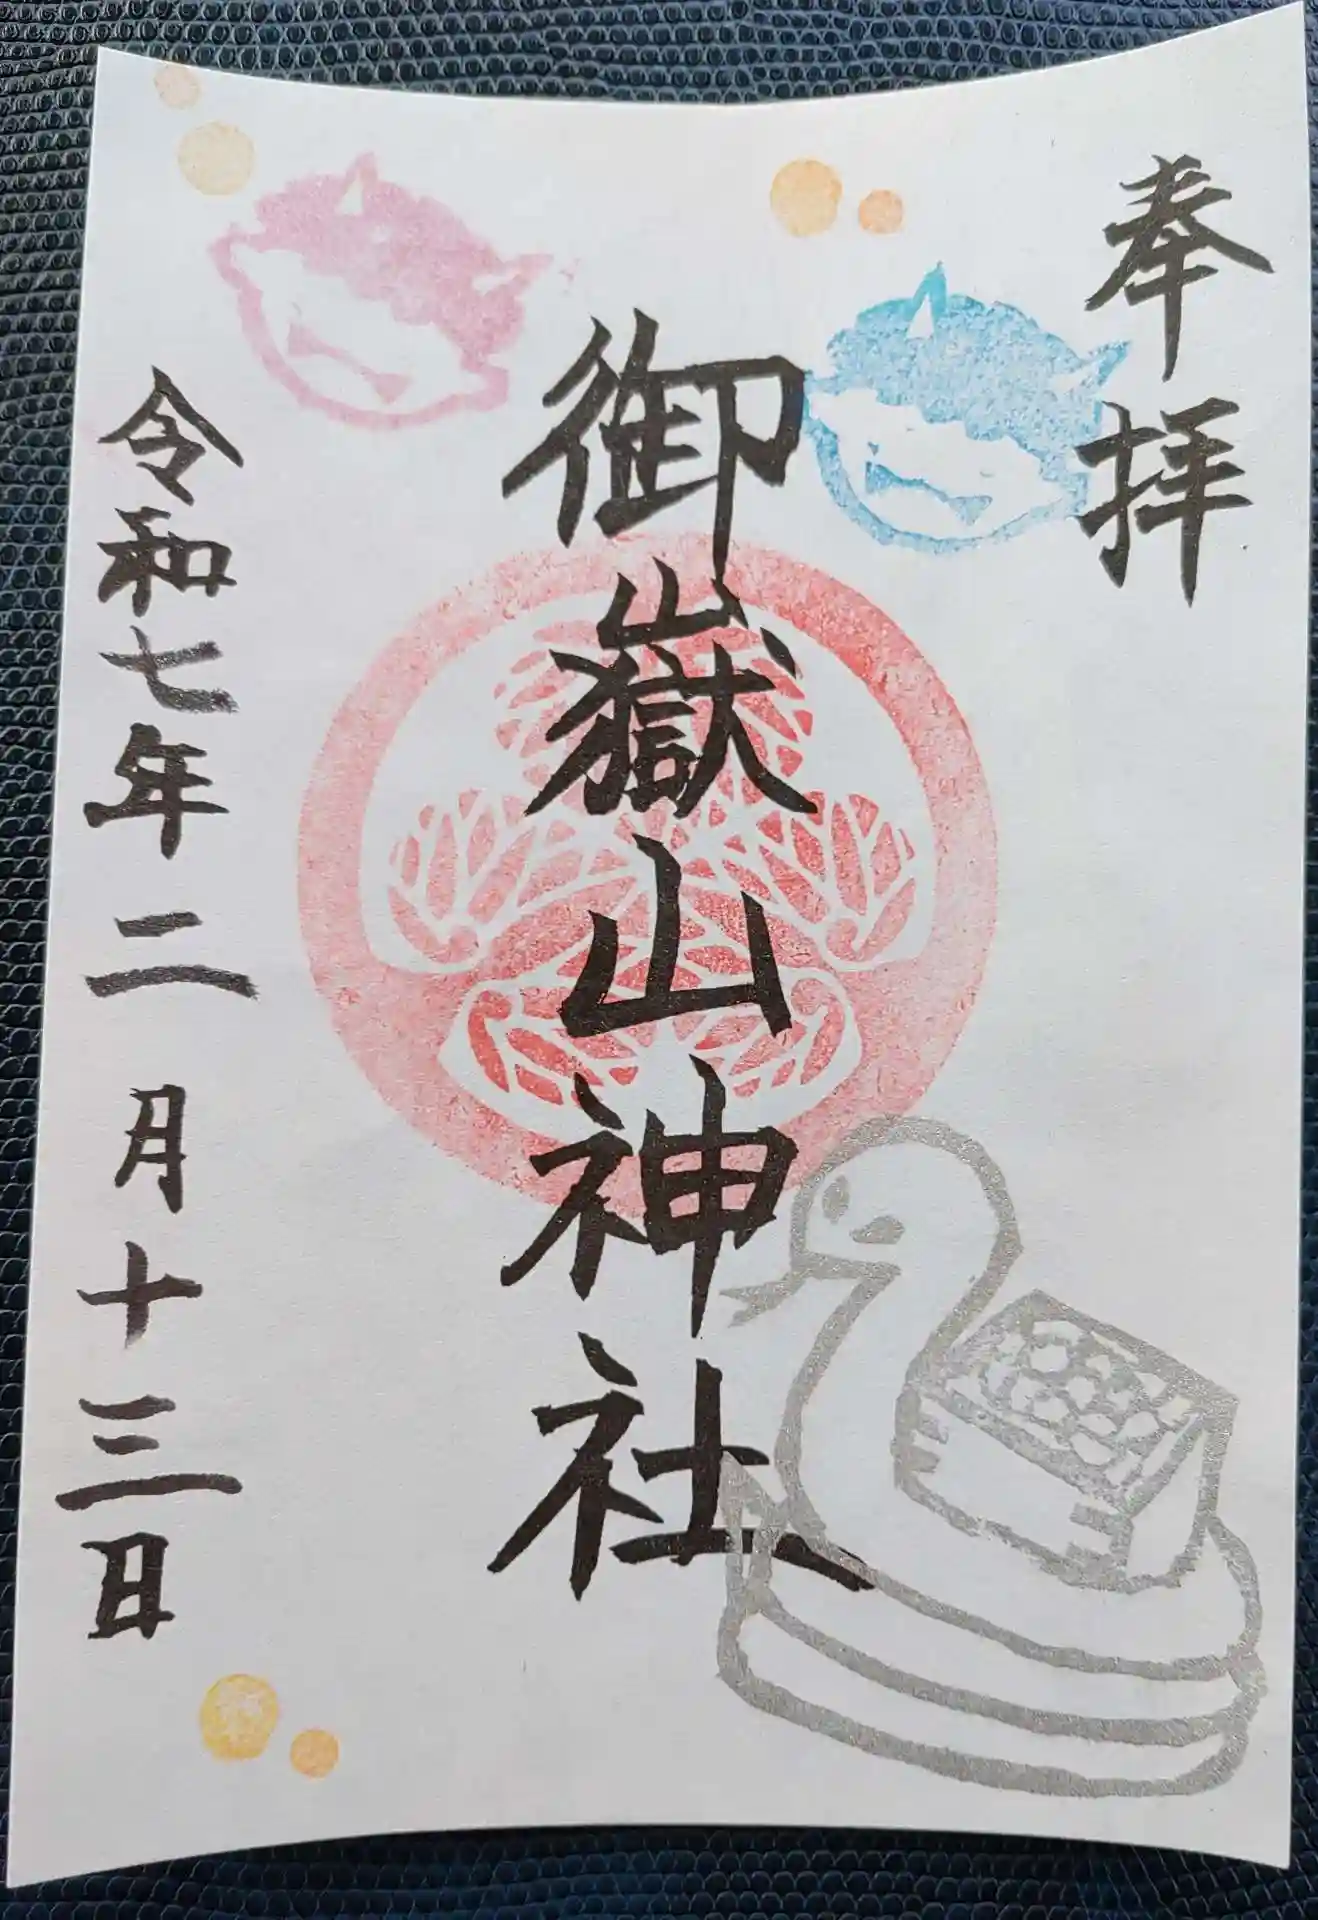 奉拝
御嶽山神社
令和七年二月十三日